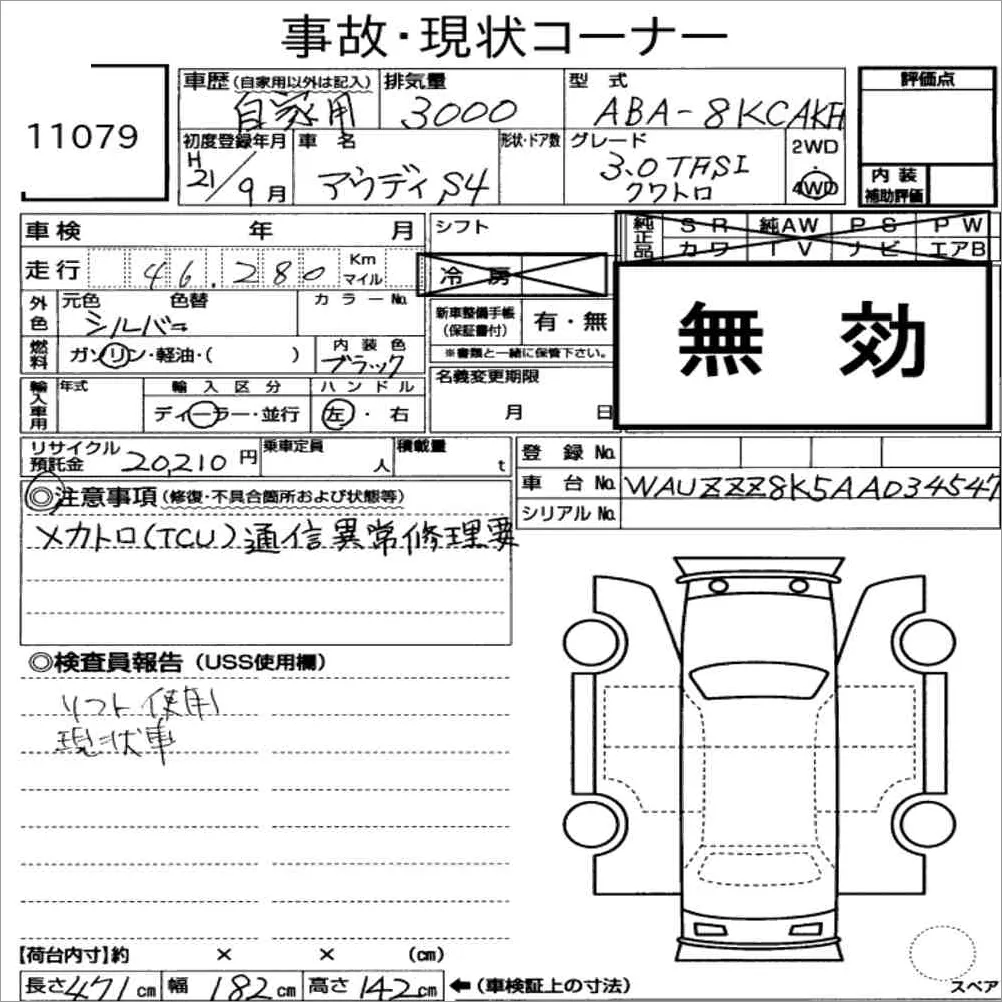 事故・現状コーナー
11079
車歴(自家用以外は記入) 自家用
排気量 3000
型式 ABA-8KCAKF
評価点
初度登録年月 H21/9月
車名 アウディS4
形状・ドア数
グレード 3.0TFSI クワトロ
2WD
4WD
内装補助評価
車検 年 月
シフト
純正品 SR 純AW PS PW
カワ TV ナビ エアB
走行 46,280 Km マイル
冷房
外色 元色 色替 シルバー
カラーNo.
新車整備手帳(保証書付) 有・無
※書類と一緒に保管下さい。
無効
燃料 ガソリン・軽油・( )
内装色 ブラック
名義変更期限
月 日
輸入車用 年式
輸入区分 ディーラー・並行
ハンドル 左・右
リサイクル預託金 20,210円
乗車定員 人
積載量 t
登録No.
車台No. WAUZZZ8K5AA034547
シリアルNo.
◎注意事項(修復・不具合箇所および状態等)
メカトロ(TCU)通信異常修理要
◎検査員報告(USS使用欄)
リフト使用
現状車
【荷台内寸】約 × × (cm)
長さ471cm 幅182cm 高さ142cm ←(車検証上の寸法)
スペア